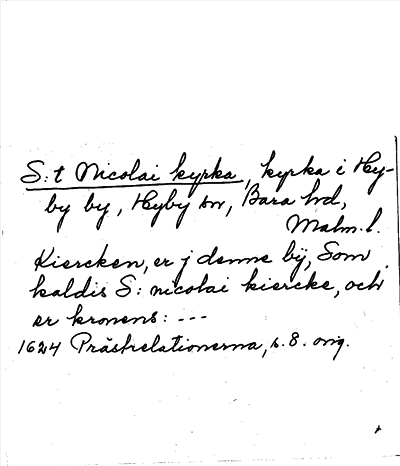 S:t Nicolai kyrka, kyrka i Hy-
by by, Hyby sn, Bara hd,
Malm. l.
Kiercken, er j denne bÿ, Som
kaldis S: nicolai kiercke, och
er kronens: ---
1624 Prästrelationerna, s. 8. orig.